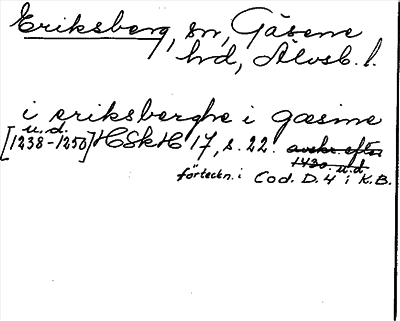 Eriksberg, sn, Gäsene
hd, Älvsb. l.
i eriksberghe i gæsine
u. d.
[1238-1250] HSkH 17, s. 22. avskr. efter
1430 u.d.
förteckn. i Cod. D. 4 i K.B.